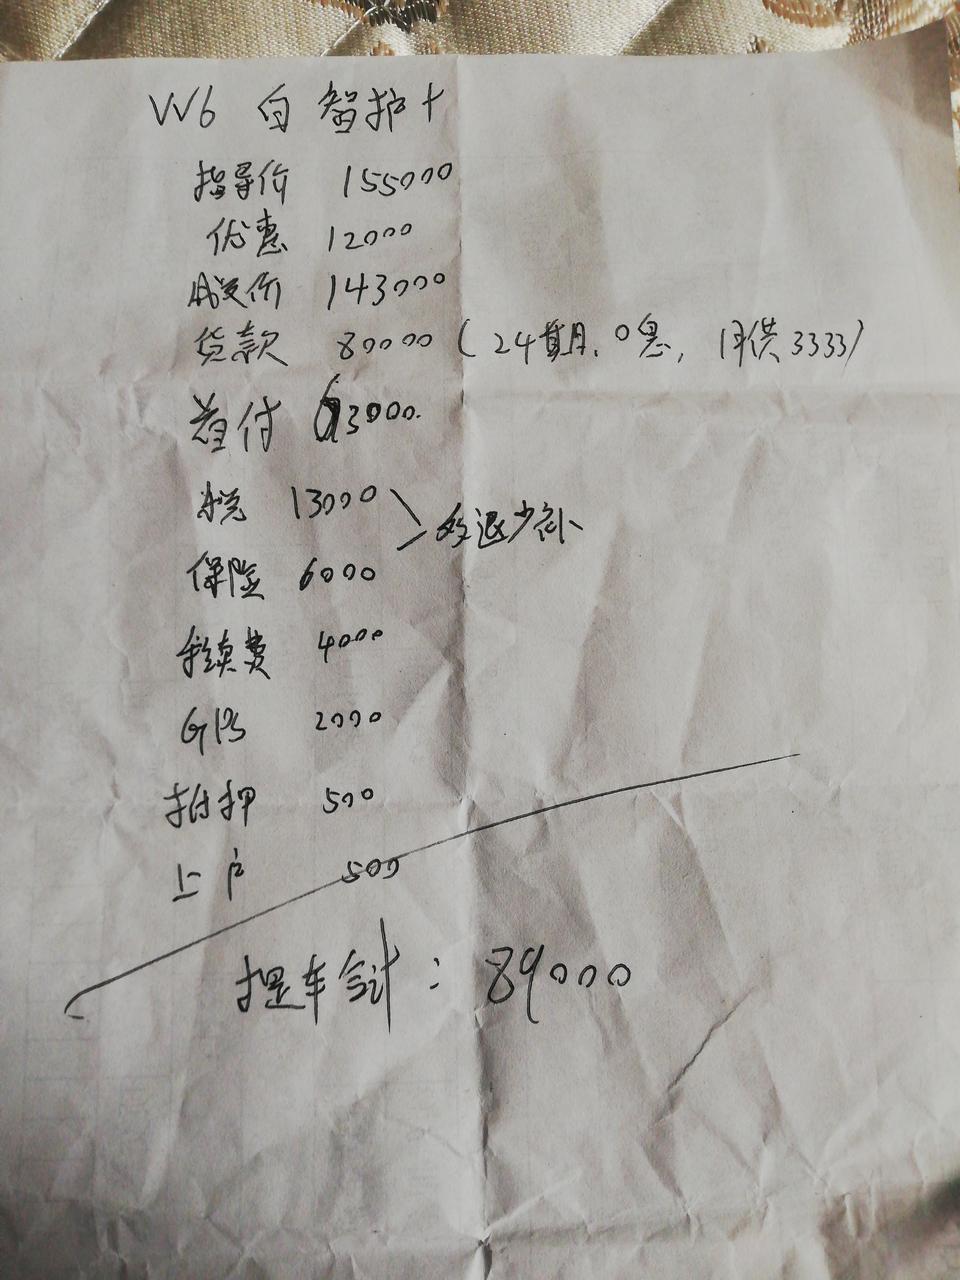 VV6 白 智护+
指导价 155000
优惠 12000
成交价 143000
贷款 80000 (24期、0息, 月供3333)
首付 63000.
税 13000
多退少补
保险 6000
手续费 4000
GPS 2000
抵押 500
上户 500
提车合计: 89000